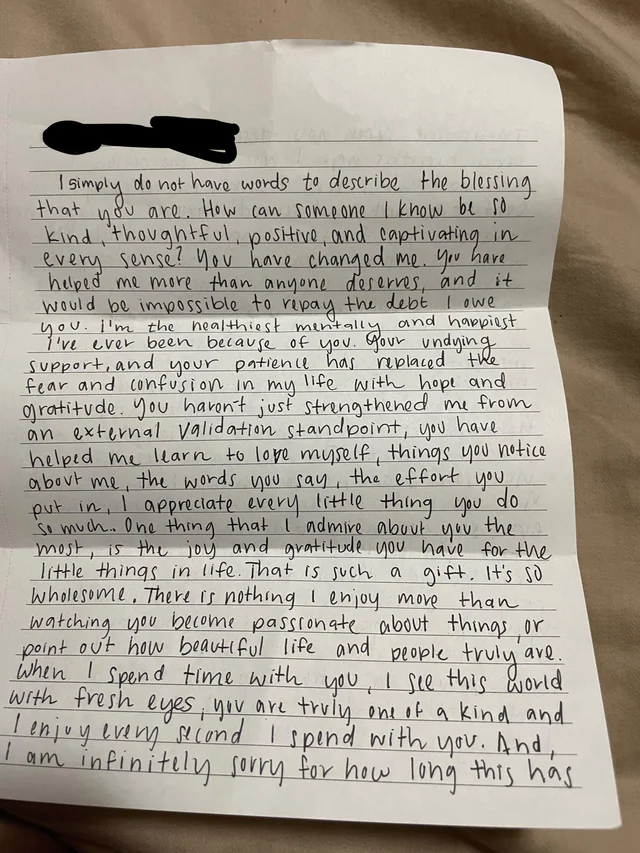 I simply do not have words to describe the blessing
that you are. How can someone I know be so
kind, thoughtful, positive, and captivating in
every sense? You have changed me. You have
helped me more than anyone deserves, and it
would be impossible to repay the debt I owe
you. I'm the healthiest mentally and happiest
I've ever been because of you. Your undying
support, and your patience has replaced the
fear and confusion in my life with hope and
gratitude. You haven't just strengthened me from
an external validation standpoint, you have
helped me learn to love myself, things you notice
about me, the words you say, the effort you
put in, I appreciate every little thing you do
so much.. One thing that I admire about you the
most, is the joy and gratitude you have for the
little things in life. That is such a gift. It's so
wholesome. There is nothing I enjoy more than
watching you become passionate about things, or
point out how beautiful life and people truly are.
When I spend time with you, I see this world
with fresh eyes, you are truly one of a kind and
I enjoy every second I spend with you. And,
I am infinitely sorry for how long this has